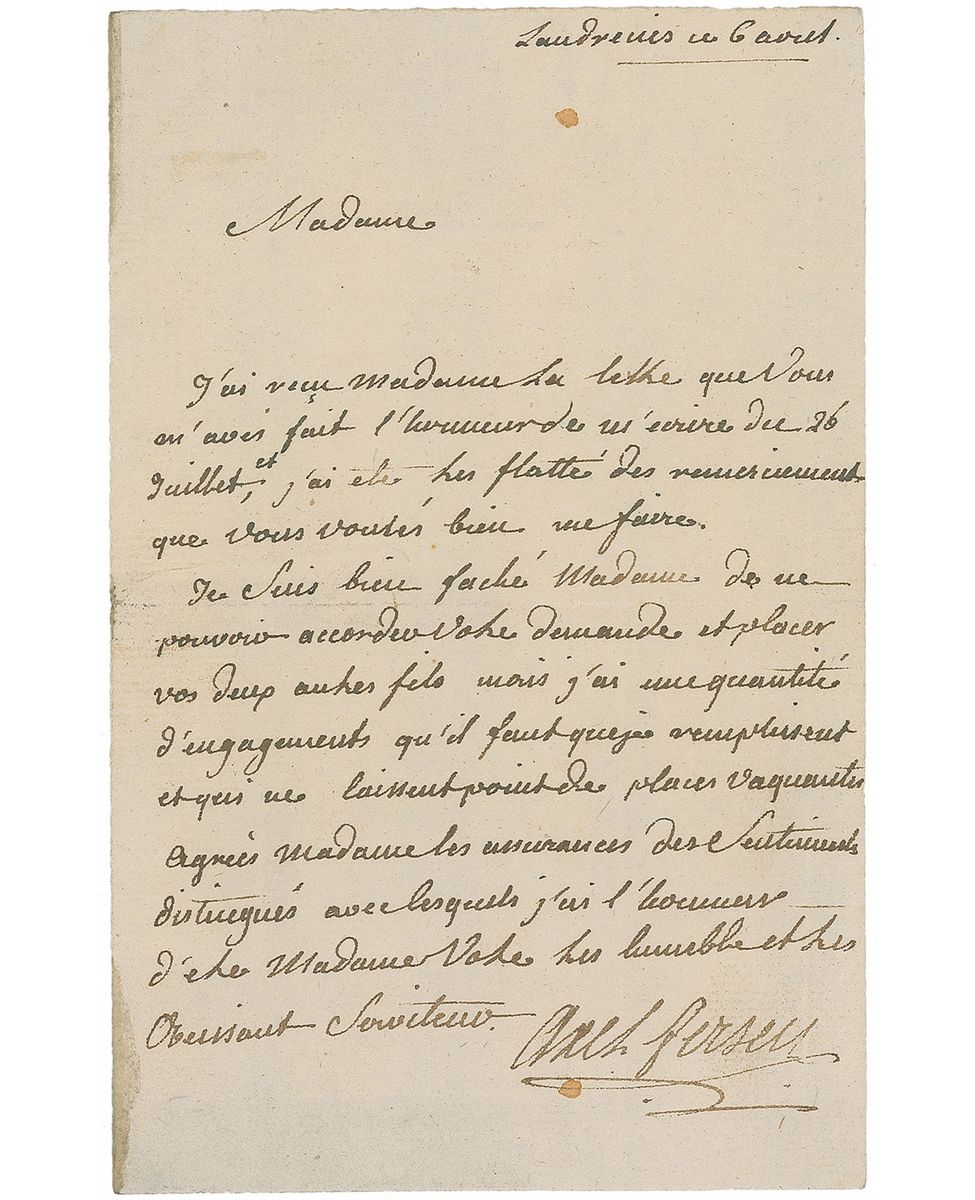 Landrecies ce 6 avril.
Madame
J'ai reçu Madame la lettre que Vous
m'avés fait l'honneur de m'écrire du 26
Juillet, et j'ai eté tres flatté des remerciement
que Vous voulés bien me faire.
Je suis bien faché Madame de ne
pouvoir accorder Votre demande et placer
vos deux autres fils mais j'ai une quantité
d'engagements qu'il faut que je remplissent
et qui ne laissent point de places vaquantes
Agréés Madame les assurances des Sentiments
distingués avec lesquels j'ai l'honneur
d'etre Madame Votre tres humble et tres
Obeissant Serviteur.
Axel Fersen